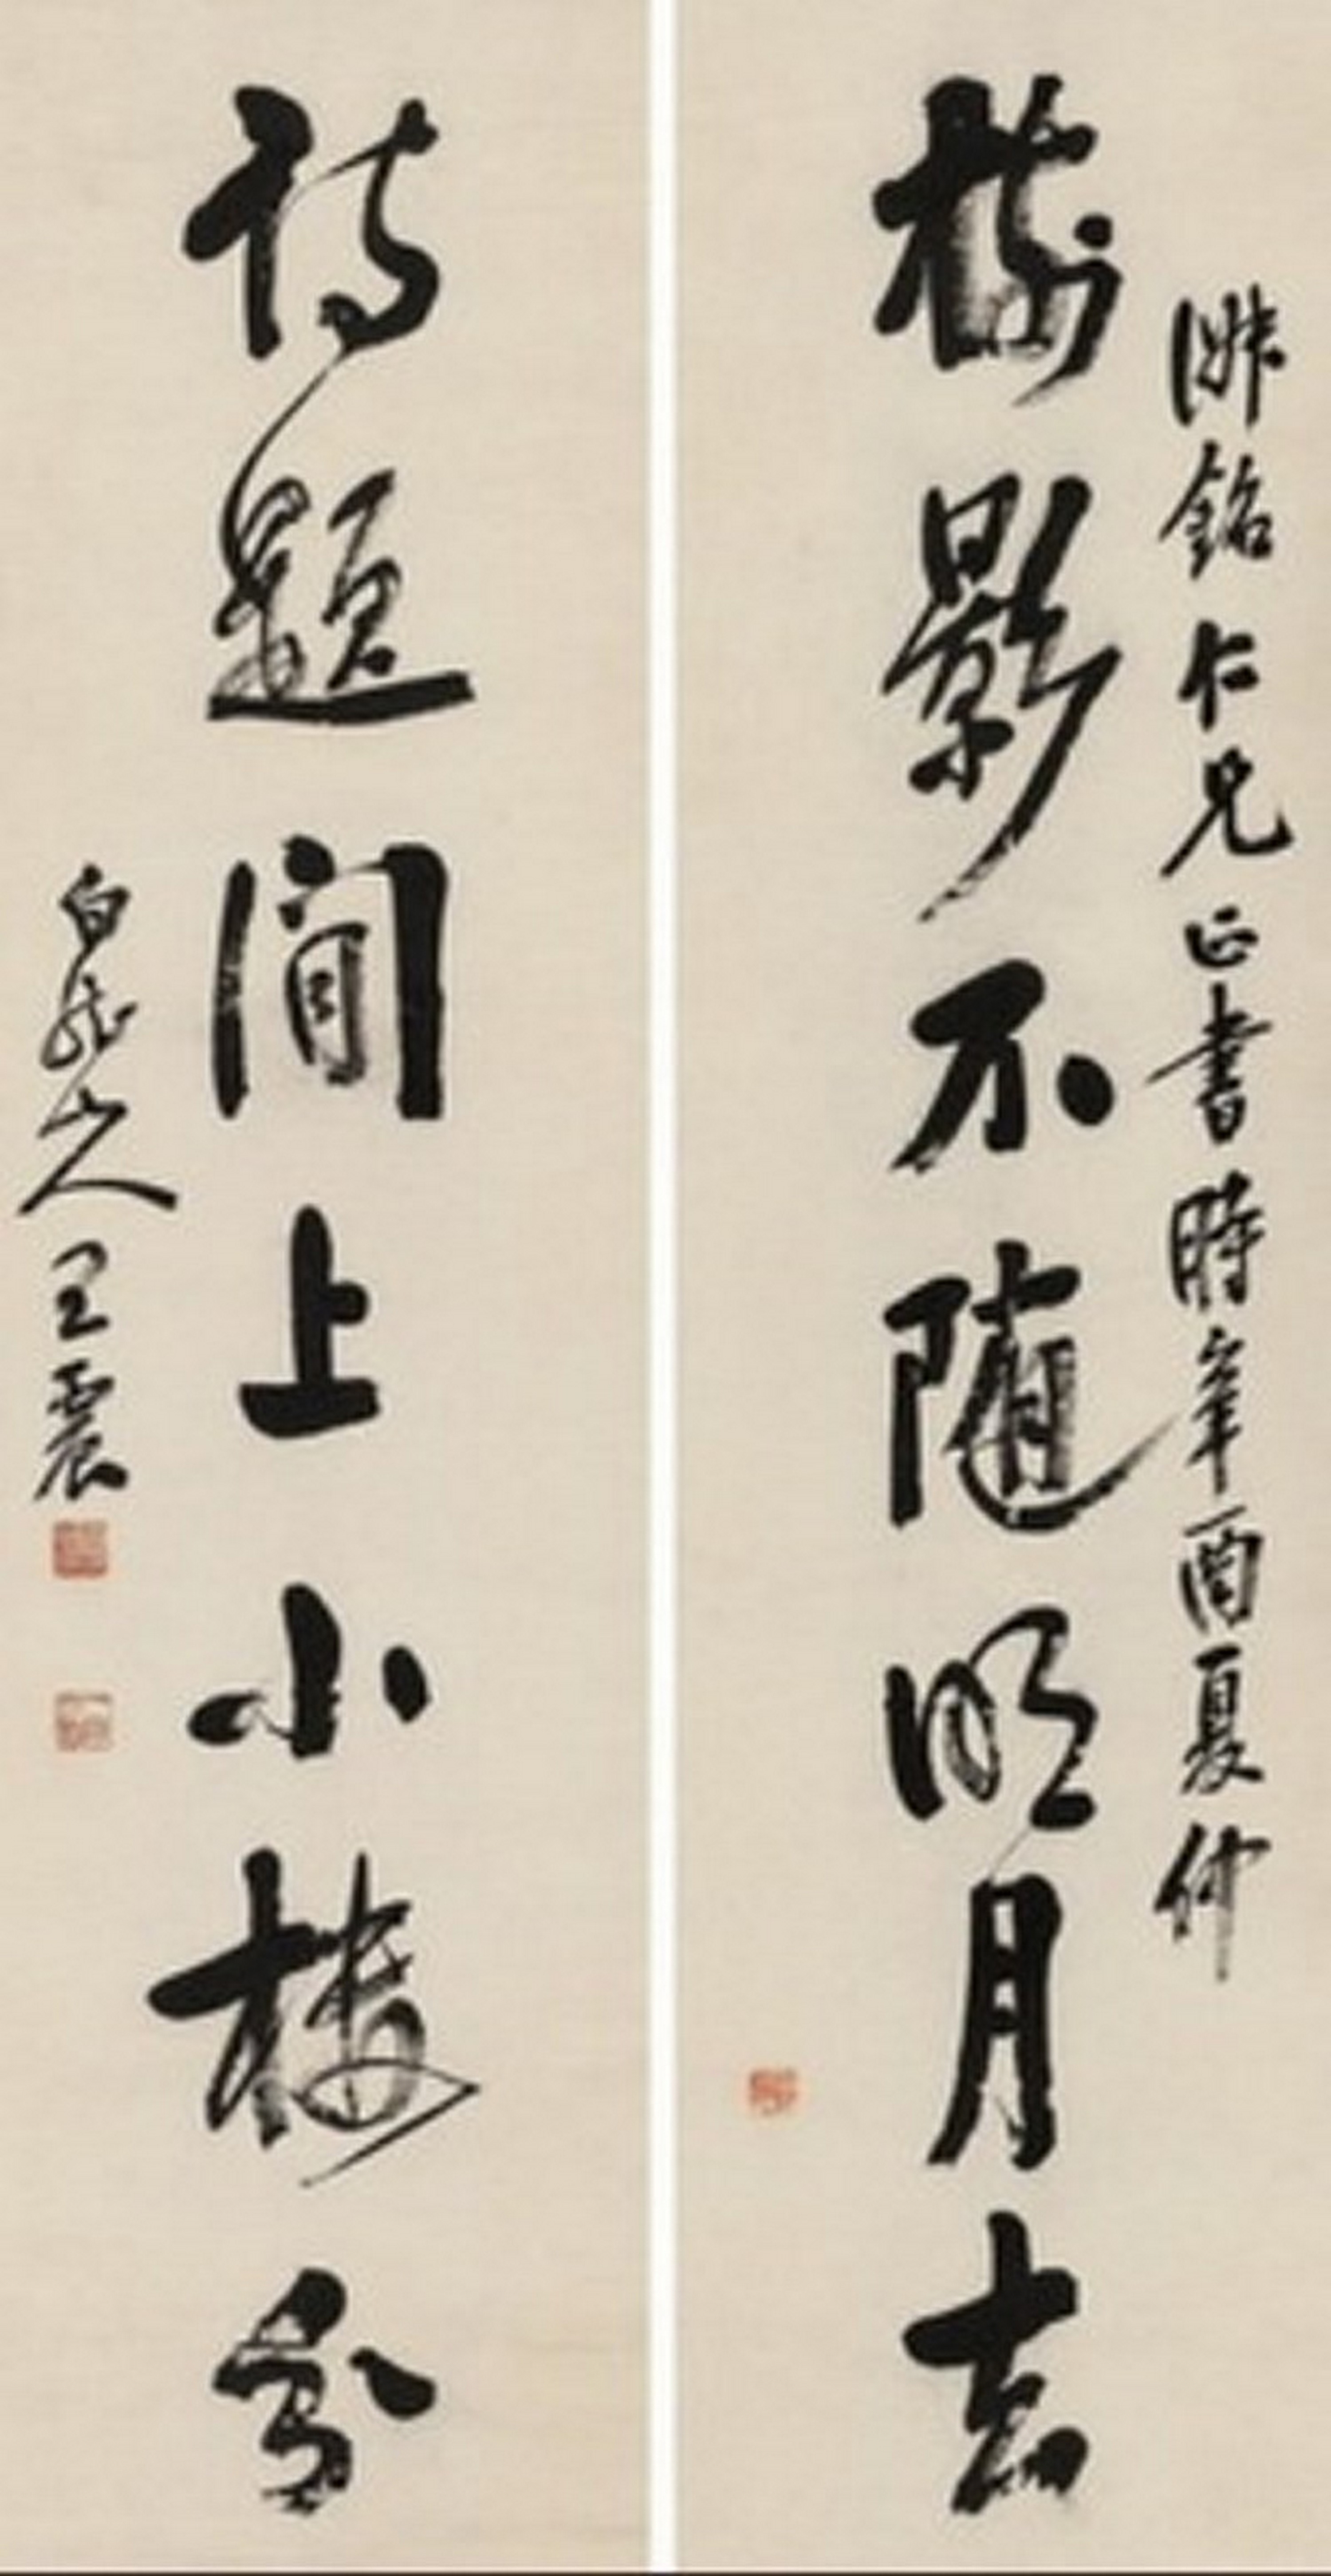 銘仁兄正書時辛酉夏仲
樹影不隨明月去
詩題閒上小樓
白龍山人王震